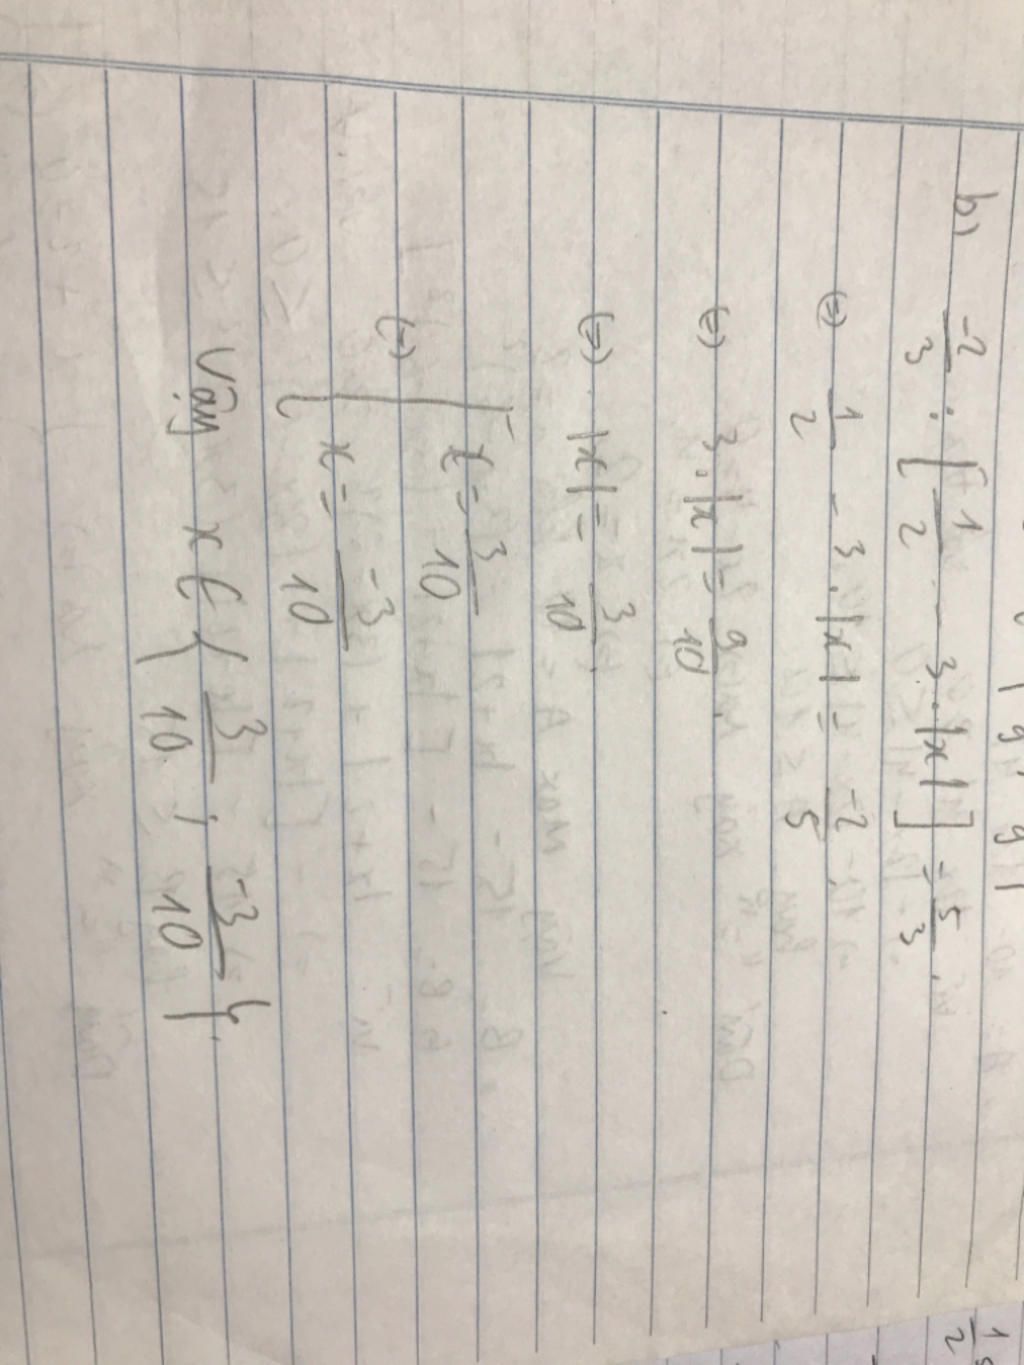 b) -2/3 : [1/2 - 3.|x|] = 5/3.
(=) 1/2 - 3.|x| = -2/5
(=) 3.|x| = 9/10.
(=) |x| = 3/10.
(=) [ x = 3/10
x = -3/10
Vậy x ∈ { 3/10 ; -3/10 }.